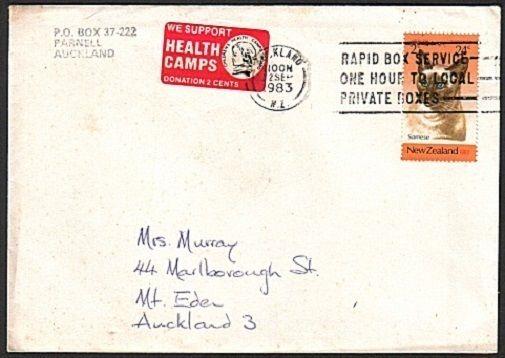 P.O. BOX 37-222
PARNELL
AUCKLAND
WE SUPPORT
HEALTH
CAMPS
DONATION 2 CENTS
CKLAND
NOON
2SEP
1983
N.Z.
RAPID BOX SERVICE
ONE HOUR TO LOCAL
PRIVATE BOXES
24c
Siamese
New Zealand
Mrs. Murray
44 Marlborough St.
Mt. Eden
Auckland 3